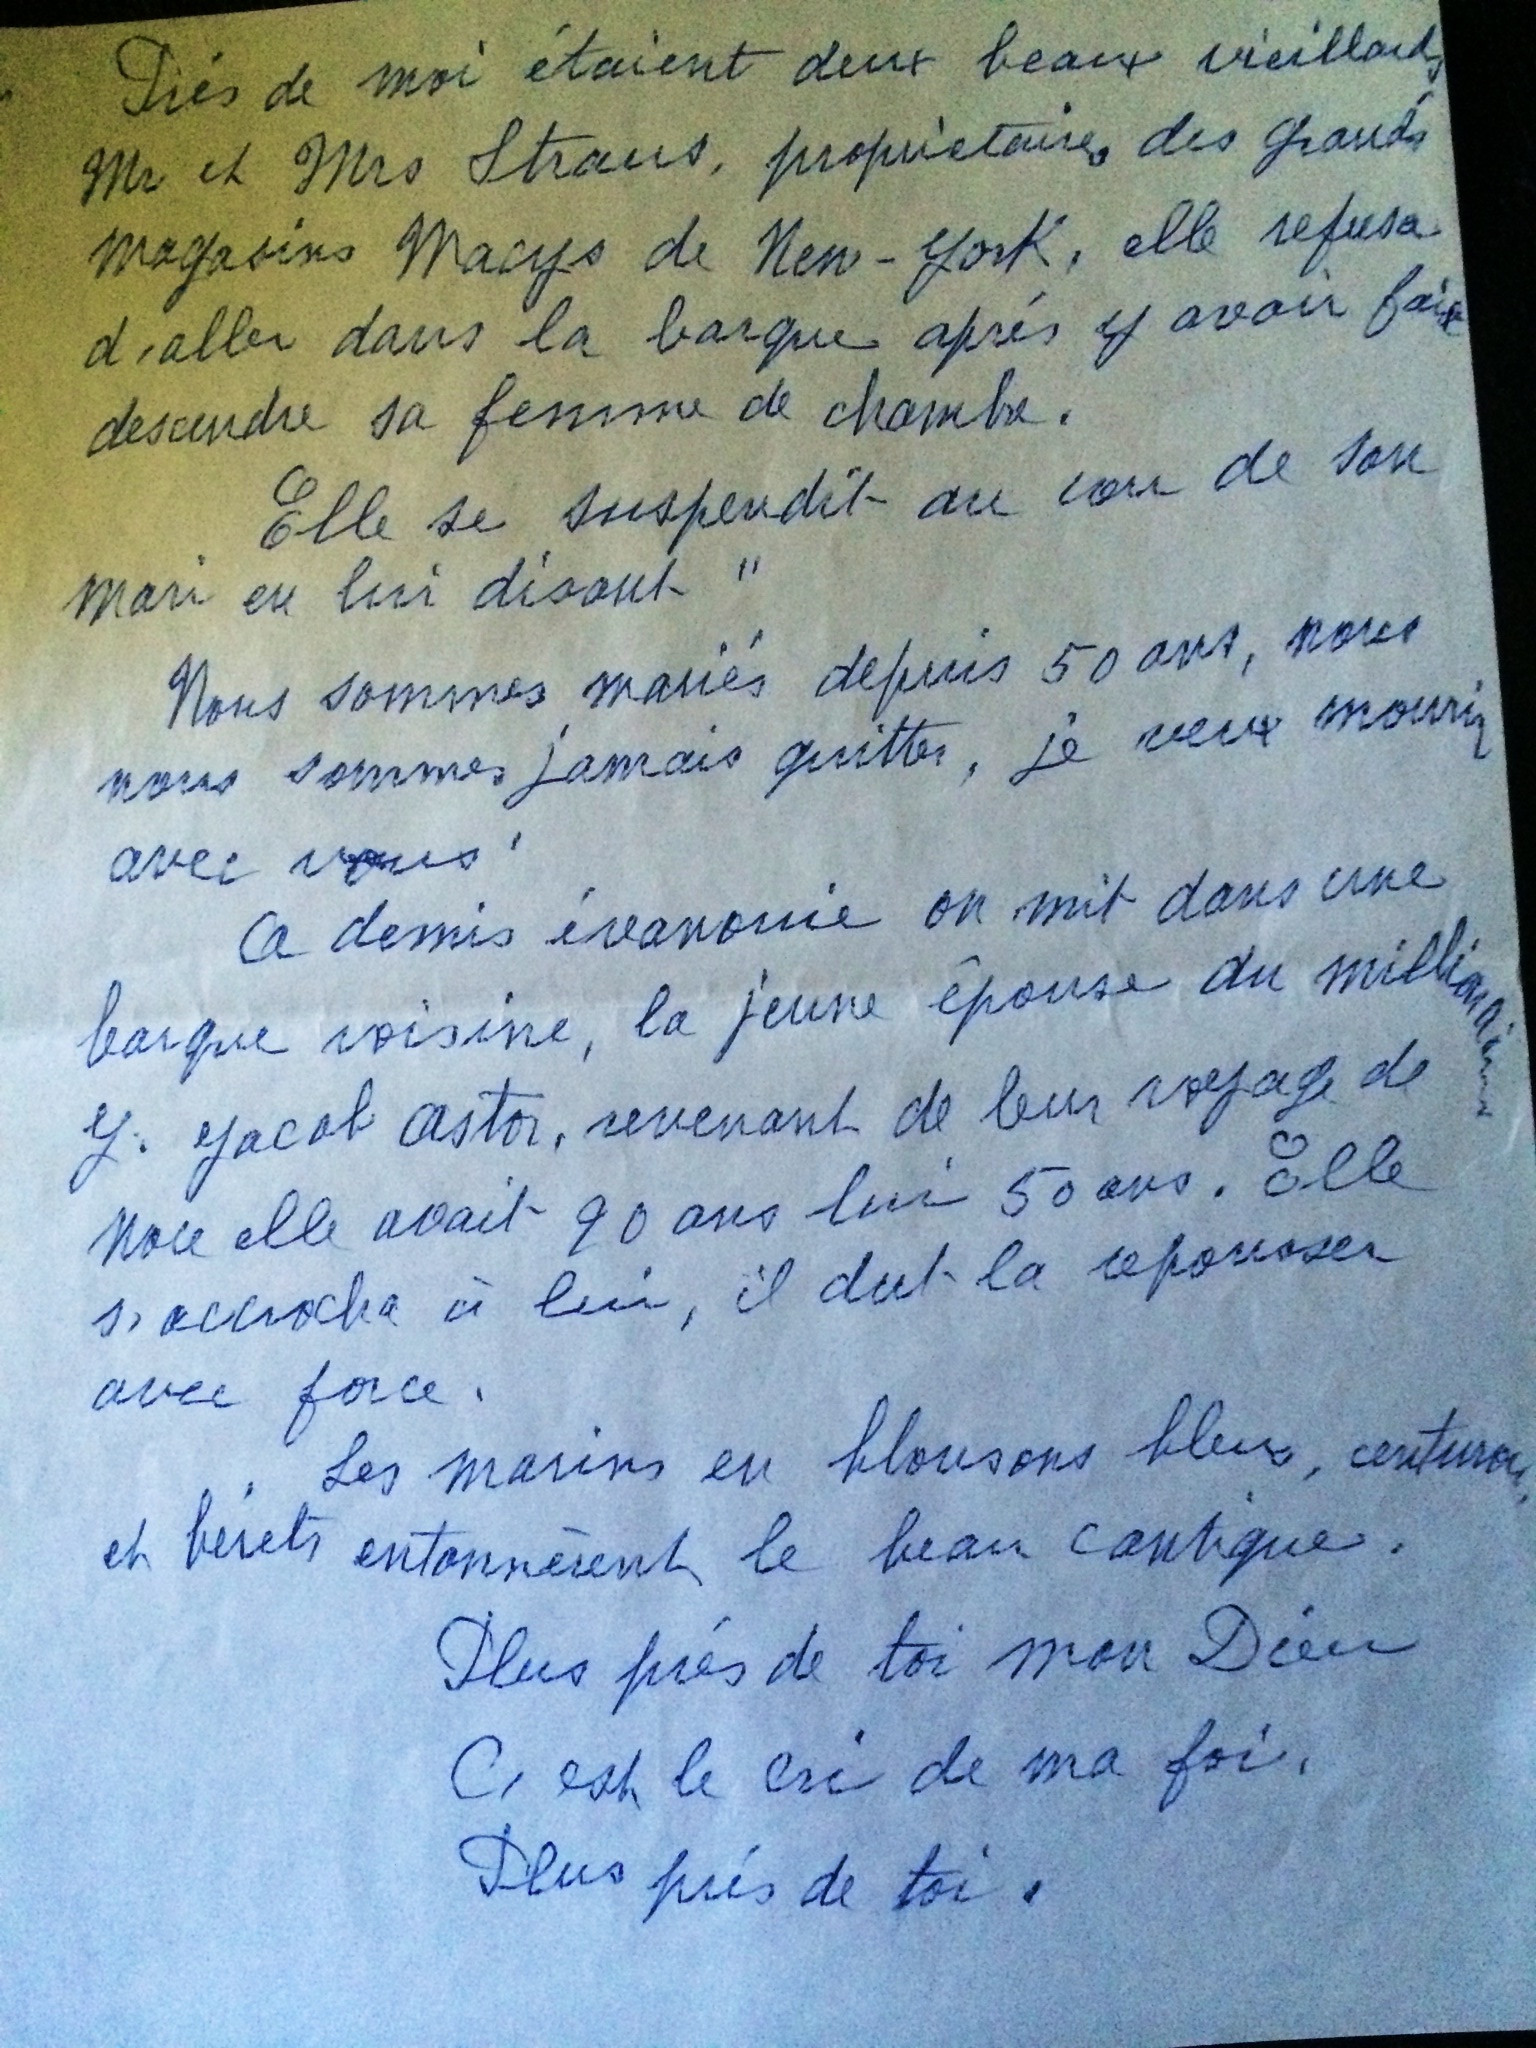 Près de moi étaient deux beaux vieillards
Mr et Mrs Straus, propriétaires des grands
magasins Macys de New-York, elle refusa
d'aller dans la barque après y avoir fait
descendre sa femme de chambre.
Elle se suspendit au cou de son
mari en lui disant "
Nous sommes mariés depuis 50 ans, nous
nous sommes jamais quittés, je veux mourir
avec vous'
A demis évanouie on mit dans une
barque voisine, la jeune épouse du milliardaire
Y. Yacob Astor, revenant de leur voyage de
noce elle avait 90 ans lui 50 ans. Elle
s'accrocha à lui, il dut la repousser
avec force.
Les marins en blousons bleus, centurons,
et bérets entonnèrent le beau cantique.
Plus près de toi mon Dieu
C'est le cri de ma foi,
Plus près de toi.